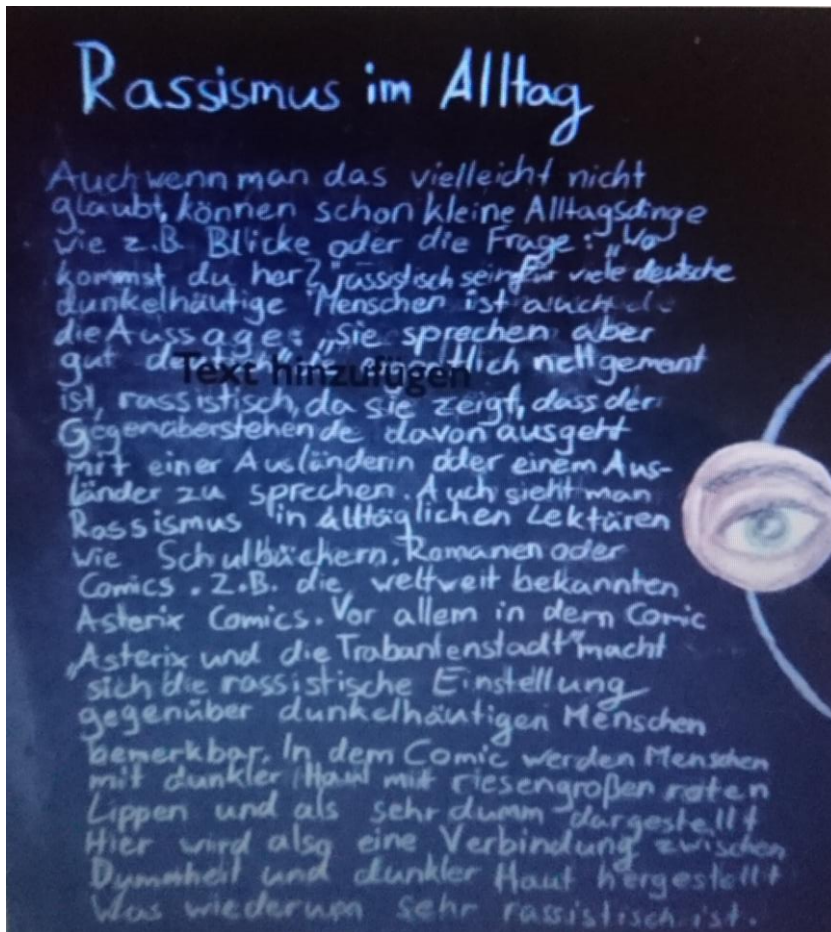 Rassismus im Alltag
Auch wenn man das vielleicht nicht
glaubt, können schon kleine Alltagsdinge
wie z.B. Blicke oder die Frage: „Wo
kommst du her?" rassistisch sein für viele deutsche
dunkelhäutige Menschen ist auch
die Aussage: „sie sprechen aber
gut nett gemeint
Text hinzufügen
ist, rassistisch, da sie zeigt, dass der
Gegenüberstehende davon ausgeht
mit einer Ausländerin oder einem Aus-
länder zu sprechen. Auch sieht man
Rassismus in alltäglichen Lektüren
wie Schulbüchern, Romanen oder
Comics. Z.B. die weltweit bekannten
Asterix Comics. Vor allem in dem Comic
„Asterix und die Trabantenstadt" macht
sich die rassistische Einstellung
gegenüber dunkelhäutigen Menschen
bemerkbar. In dem Comic werden Menschen
mit dunkler Haut mit riesengroßen roten
Lippen und als sehr dumm dargestellt
Hier wird also eine Verbindung zwischen
Dummheit und dunkler Haut hergestellt
Was wiederum sehr rassistisch ist.